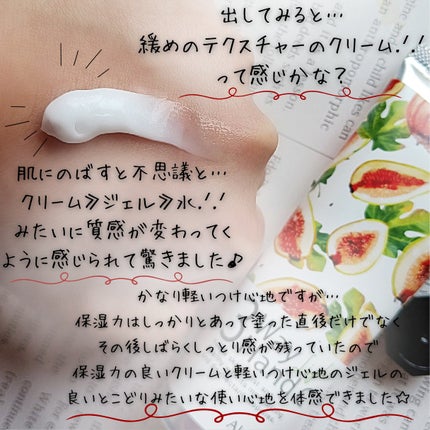 出してみると…
緩めのテクスチャーのクリーム.ᐟ.ᐟ
って感じかな？
肌にのばすと不思議と…
クリーム≫ジェル≫水.ᐟ.ᐟ
みたいに質感が変わってく
ように感じられて驚きました♪
かなり軽いつけ心地ですが…
保湿力はしっかりとあって塗った直後だけでなく
その後しばらくしっとり感が残っていたので
保湿力の良いクリームと軽いつけ心地のジェルの
良いとこどりみたいな使い心地を体感できました☆